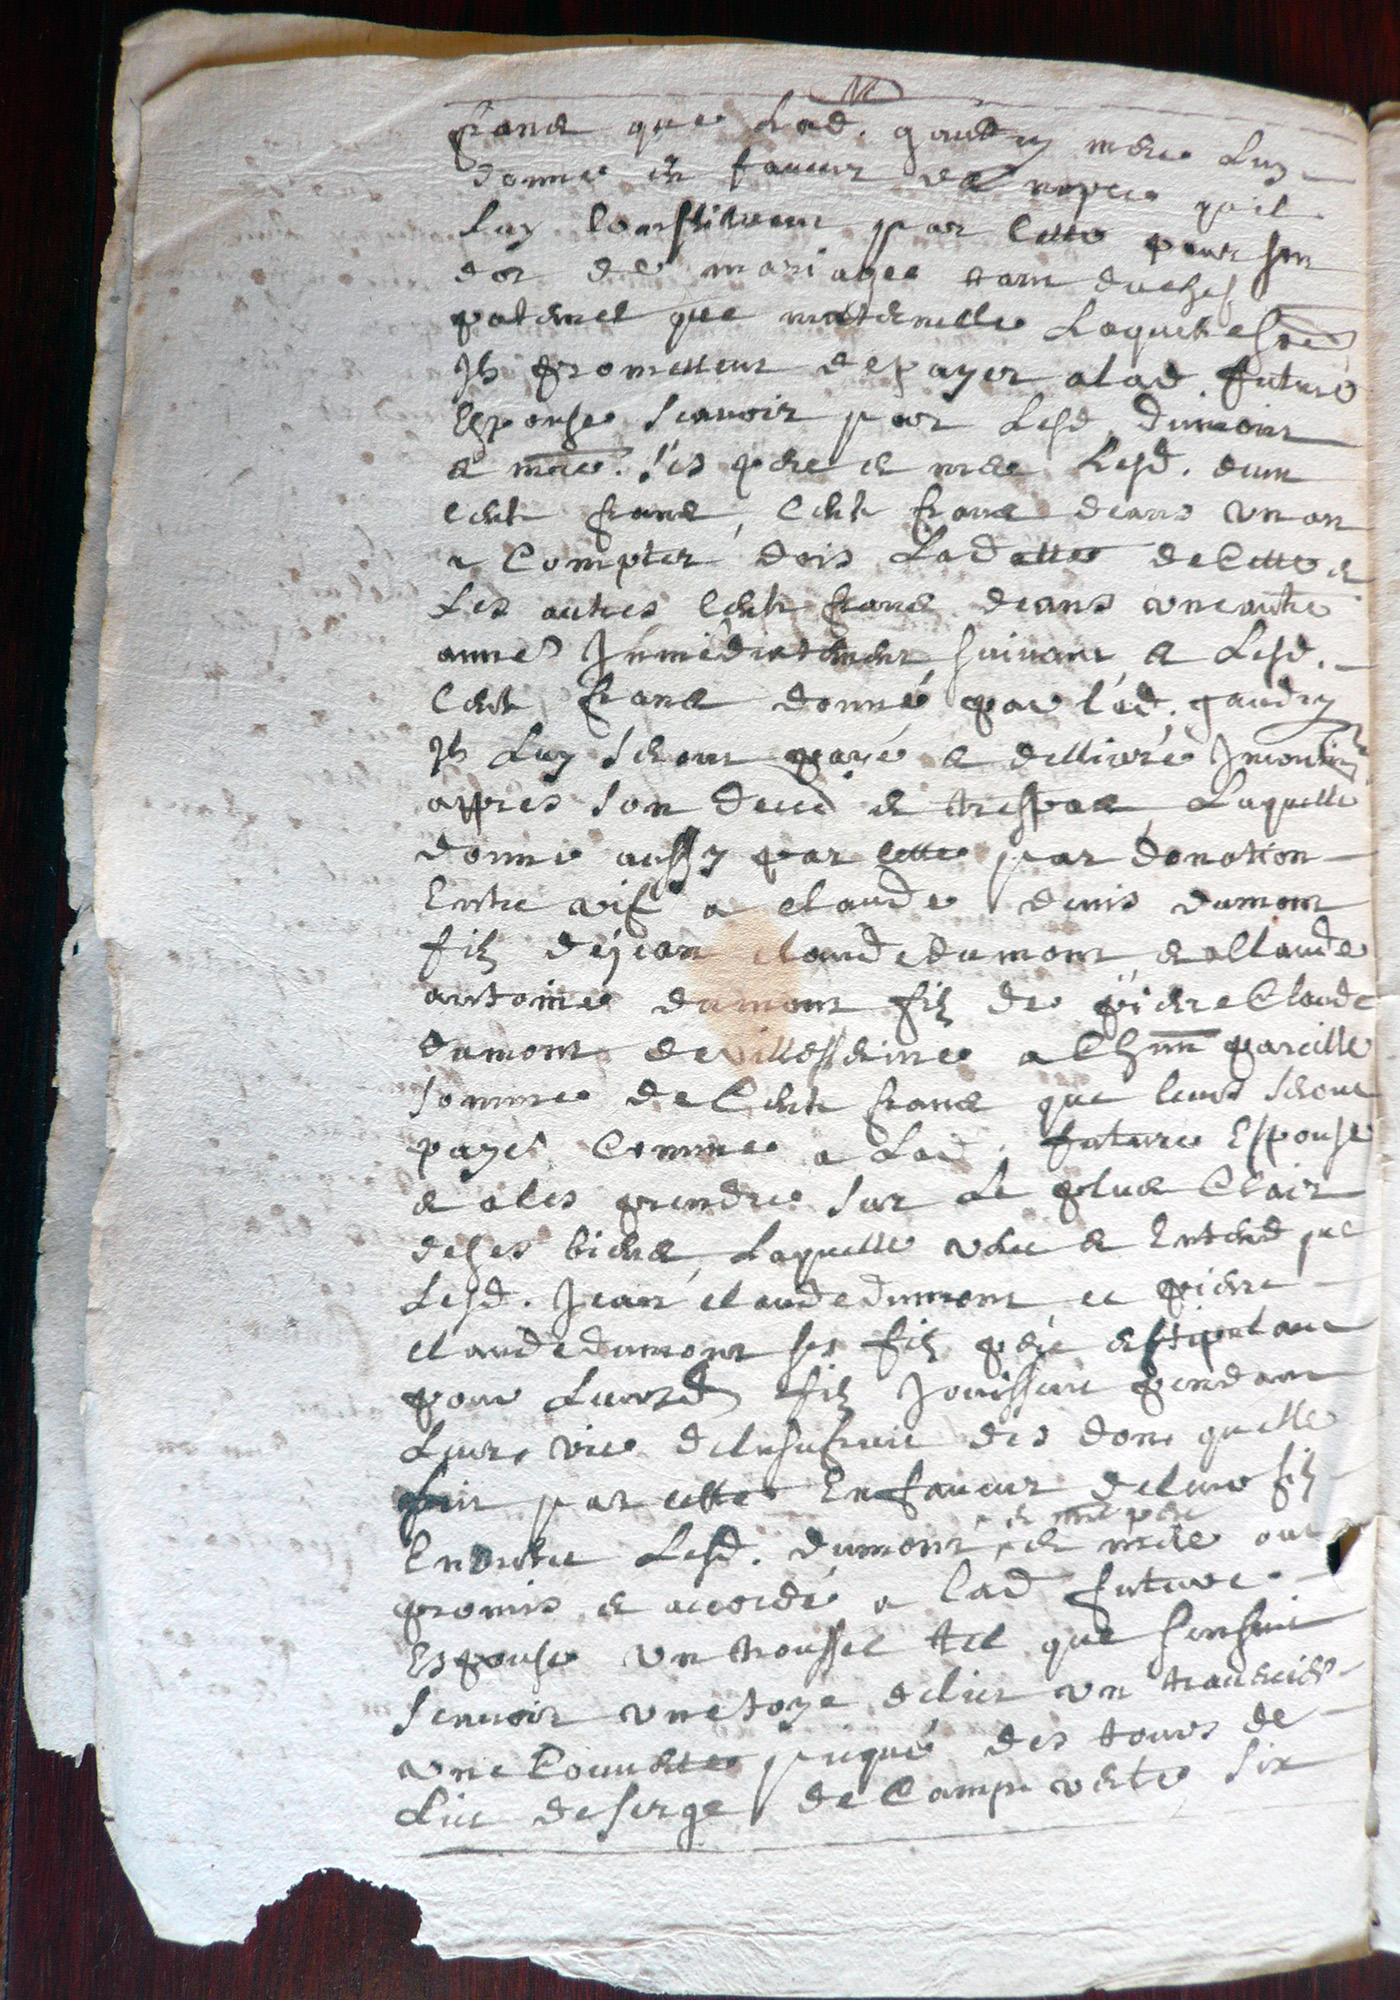 franc que Lad. gaudry mere Luy
donne en faveur de nopce quil
Luy Constituent par Cette pour son
dot de mariage tant du chef
paternel que maternelle Laquelle so͞e
Ils promettent de payer a lad. future
Espouse scavoir par Lesd. Dumont
& ses pere et mere Lesd. deux
Cent franc, Cent franc deans un an
a Compter dois La datte de Cette et
Les autres Cent franc deans une autre
anneé Immediatement suivant & Lesd.
Cent franc donné par lad. gaudry
Ils Luy seront payé & dellivré
appres son deced & trespas Laquelle
donne aussy par cette par donation
Entre vif a claude denis dumont
filz de jean claude dumont & a Claude
antoine dumont filz de piere Claude
dumont de a Ch͞un pareille
somme de Cent franc que leurs seront
payeé Comme a Lad. future Espouse
& a les prendre sur Le plus Clair
de ses biens, Laquelle veut & Entend que
Lesd. Jean claude dumont et piere
claude dumont ses filz pere & stipulant
pour Leursd filz Jouissent pendant
Leurs vie de lusufruit des dons quelle
fait par cette En faveur de leur filz
En outre Lesd. dumont & mere ont
promis & accordé a Lad future
Espouse un troussel tel que sensuit
scavoir une toye de lict un traversier
une Couverte piqué des tours de
Lict de serge de Camp verte six